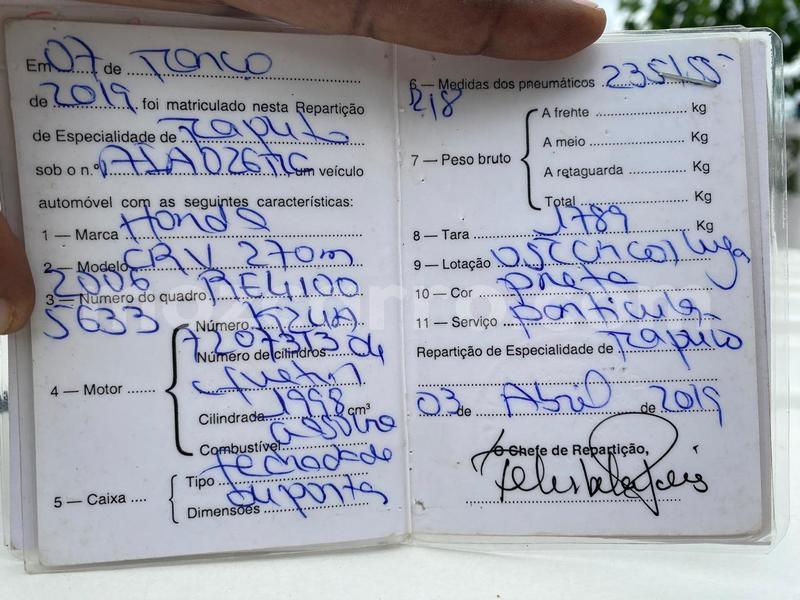 Em 07 de Março
de 2019 foi matriculado nesta Repartição
de Especialidade de Maputo
sob o n.º um veículo
automóvel com as seguintes características:
1 — Marca Honda
2 — Modelo CRV 270m
2006
3 — Número do quadro RE4100
5633
4 — Motor
Número K24A
7207313 de
Número de cilindros
Cilindrada 1998 cm³
Combustível gasolina
5 — Caixa
Tipo fechada de
Dimensões portas
6 — Medidas dos pneumáticos 235/55
R18
7 — Peso bruto
A frente Kg
A meio Kg
A retaguarda Kg
Total Kg
8 — Tara 1789 Kg
9 — Lotação 05 (cinco) lugar
10 — Cor preta
11 — Serviço particular
Repartição de Especialidade de Maputo
03 de Abril de 2019
O Chefe de Repartição,